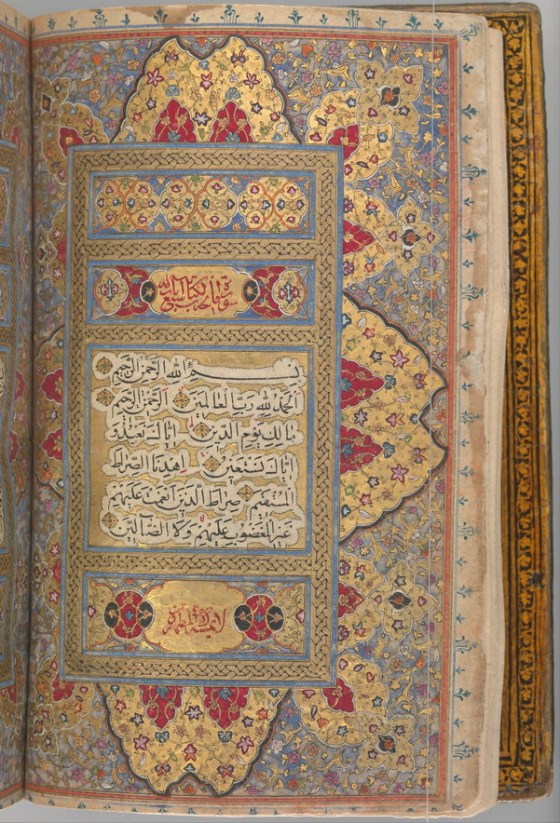 سورة فاتحة الكتاب سبع
بسم الله الرحمن الرحيم
الحمد لله رب العالمين الرحمن الرحيم
مالك يوم الدين اياك نعبد و
اياك نستعين اهدنا الصراط
المستقيم صراط الذين انعمت عليهم
غير المغضوب عليهم ولا الضالين
لا يمسه الا